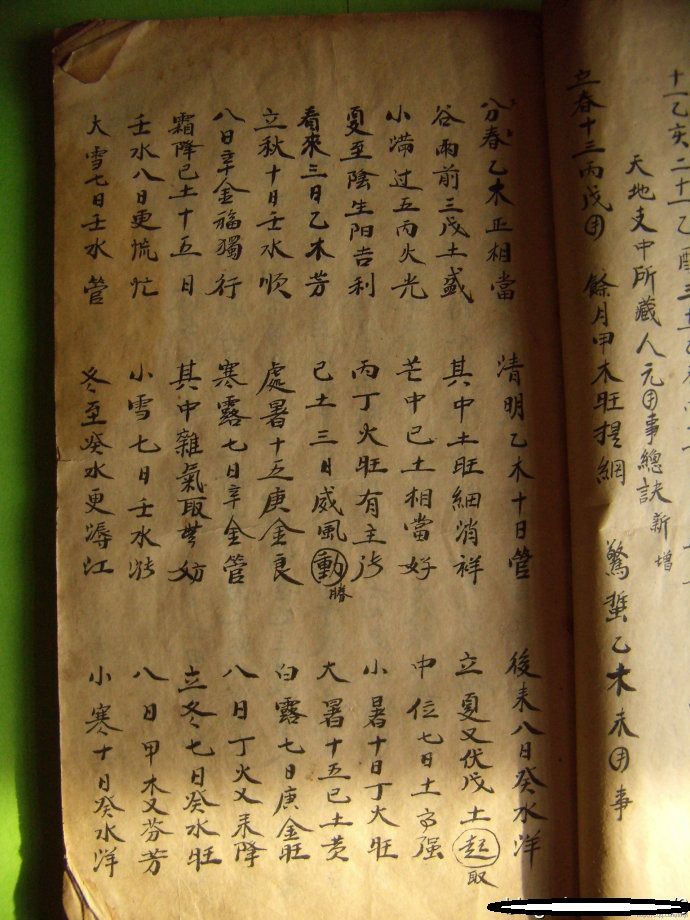 十一乙亥二十一乙酉三十乙
天地支中所藏人元用事總訣 新增
立春十三丙戊用 餘月甲木旺提綱 驚蟄乙木未用事
分春乙木正相當 清明乙木十日管 後来八日癸水洋
谷雨前三戊土盛 其中土旺細消祥 立夏又伏戊土起 取
小滿过五丙火光 芒中己土相當好 中位七日土高强
夏至陰生阳吉利 丙丁火旺有主 小暑十日丁火旺
看來三日乙木芳 己土三日威風動 勝 大暑十五己土黄
立秋十日壬水順 處暑十五庚金良 白露七日庚金旺
八日辛金福獨行 寒露七日辛金管 八日丁火又来降
霜降己土十五日 其中雜氣取無妨 立冬七日癸水旺
壬水八日更慌忙 小雪七日壬水 八日甲木又芬芳
大雪七日壬水管 冬至癸水更江 小寒十日癸水洋